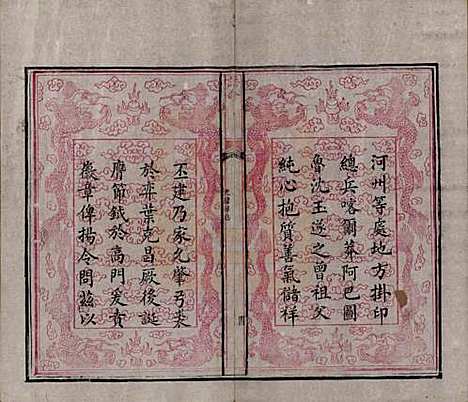 河州等處地方掛印
總兵喀爾莽阿巴圖
魯沈玉遂之曾祖父
純心抱質善氣儲祥
丕建乃家允肇弓裘
於弈葉克昌厥後誕
膺節鉞於高門爰賁
徽章俾揚令問茲以